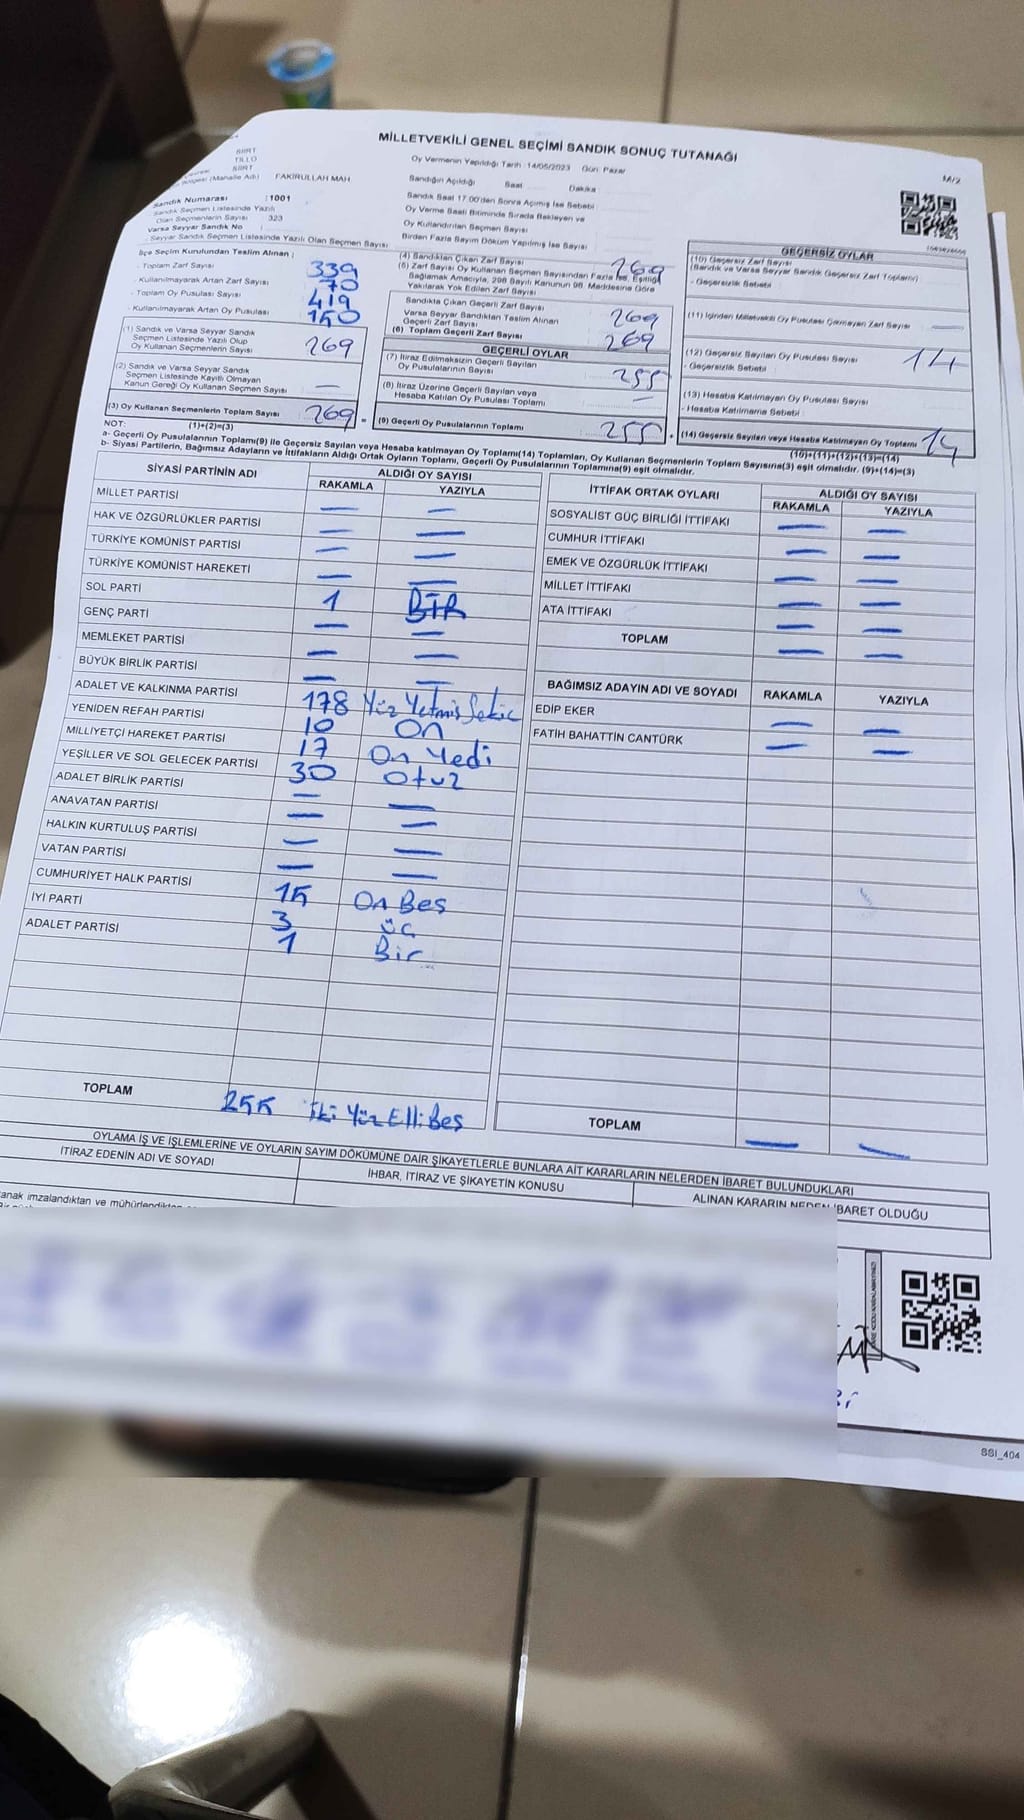 MİLLETVEKİLİ GENEL SEÇİMİ SANDIK SONUÇ TUTANAĞI
M/2
SİİRT
TİLLO
SİİRT
(Mahalle Adı) FAKİRULLAH MAH
Oy Vermenin Yapıldığı Tarih :14/05/2023 Gün: Pazar
Sandığın Açıldığı Saat Dakika
Sandık Saat 17.00'den Sonra Açılmış İse Sebebi
Oy Verme Saati Bitiminde Sırada Bekleyen ve
Oy Kullandırılan Seçmen Sayısı
Birden Fazla Sayım Döküm Yapılmış İse Sayısı
Sandık Numarası :1001
Sandık Seçmen Listesinde Yazılı
Olan Seçmenlerin Sayısı 323
Varsa Seyyar Sandık No
Seyyar Sandık Seçmen Listesinde Yazılı Olan Seçmen Sayısı
İlçe Seçim Kurulundan Teslim Alınan ;
- Toplam Zarf Sayısı 339
- Kullanılmayarak Artan Zarf Sayısı 70
- Toplam Oy Pusulası Sayısı 419
- Kullanılmayarak Artan Oy Pusulası 150
(1) Sandık ve Varsa Seyyar Sandık
Seçmen Listesinde Yazılı Olup
Oy Kullanan Seçmenlerin Sayısı 269
(2) Sandık ve Varsa Seyyar Sandık
Seçmen Listesinde Kayıtlı Olmayan
Kanun Gereği Oy Kullanan Seçmen Sayısı —
(3) Oy Kullanan Seçmenlerin Toplam Sayısı 269 =
(1)+(2)=(3)
(4) Sandıktan Çıkan Zarf Sayısı 269
(5) Zarf Sayısı Oy Kullanan Seçmen Sayısından Fazla İse, Eşitliği
Sağlamak Amacıyla, 298 Sayılı Kanunun 98. Maddesine Göre
Yakılarak Yok Edilen Zarf Sayısı
Sandıkta Çıkan Geçerli Zarf Sayısı
Varsa Seyyar Sandıktan Teslim Alınan
Geçerli Zarf Sayısı 269
(6) Toplam Geçerli Zarf Sayısı 269
GEÇERLİ OYLAR
(7) İtiraz Edilmeksizin Geçerli Sayılan
Oy Pusulalarının Sayısı 255
(8) İtiraz Üzerine Geçerli Sayılan veya
Hesaba Katılan Oy Pusulası Toplamı —
(9) Geçerli Oy Pusulalarının Toplamı 255 +
GEÇERSİZ OYLAR
(10) Geçersiz Zarf Sayısı
(Sandık ve Varsa Seyyar Sandık Geçersiz Zarf Toplamı)
- Geçersizlik Sebebi
(11) İçinden Milletvekili Oy Pusulası Çıkmayan Zarf Sayısı —
(12) Geçersiz Sayılan Oy Pusulası Sayısı 14
- Geçersizlik Sebebi
(13) Hesaba Katılmayan Oy Pusulası Sayısı
- Hesaba Katılmama Sebebi
(14) Geçersiz Sayılan veya Hesaba Katılmayan Oy Toplamı 14
(10)+(11)+(12)+(13)=(14)
NOT:
a- Geçerli Oy Pusulalarının Toplamı(9) ile Geçersiz Sayılan veya Hesaba katılmayan Oy Toplamı(14) Toplamları, Oy Kullanan Seçmenlerin Toplam Sayısına(3) eşit olmalıdır. (9)+(14)=(3)
b- Siyasi Partilerin, Bağımsız Adayların ve İttifakların Aldığı Ortak Oyların Toplamı, Geçerli Oy Pusulalarının Toplamına(9) eşit olmalıdır.
SİYASİ PARTİNİN ADI ALDIĞI OY SAYISI
RAKAMLA YAZIYLA
MİLLET PARTİSİ — —
HAK VE ÖZGÜRLÜKLER PARTİSİ — —
TÜRKİYE KOMÜNİST PARTİSİ — —
TÜRKİYE KOMÜNİST HAREKETİ — —
SOL PARTİ 1 BİR
GENÇ PARTİ — —
MEMLEKET PARTİSİ — —
BÜYÜK BİRLİK PARTİSİ — —
ADALET VE KALKINMA PARTİSİ 178 Yüz Yetmiş Sekiz
YENİDEN REFAH PARTİSİ 10 On
MİLLİYETÇİ HAREKET PARTİSİ 17 On Yedi
YEŞİLLER VE SOL GELECEK PARTİSİ 30 Otuz
ADALET BİRLİK PARTİSİ — —
ANAVATAN PARTİSİ — —
HALKIN KURTULUŞ PARTİSİ — —
VATAN PARTİSİ — —
CUMHURİYET HALK PARTİSİ 15 On Beş
İYİ PARTİ 3 üç
ADALET PARTİSİ 1 Bir
TOPLAM 255 İki Yüz Elli Beş
İTTİFAK ORTAK OYLARI ALDIĞI OY SAYISI
RAKAMLA YAZIYLA
SOSYALİST GÜÇ BİRLİĞİ İTTİFAKI — —
CUMHUR İTTİFAKI — —
EMEK VE ÖZGÜRLÜK İTTİFAKI — —
MİLLET İTTİFAKI — —
ATA İTTİFAKI — —
TOPLAM — —
BAĞIMSIZ ADAYIN ADI VE SOYADI RAKAMLA YAZIYLA
EDİP EKER — —
FATİH BAHATTİN CANTÜRK — —
TOPLAM — —
OYLAMA İŞ VE İŞLEMLERİNE VE OYLARIN SAYIM DÖKÜMÜNE DAİR ŞİKAYETLERLE BUNLARA AİT KARARLARIN NELERDEN İBARET BULUNDUKLARI
İTİRAZ EDENİN ADI VE SOYADI
İHBAR, İTİRAZ VE ŞİKAYETİN KONUSU
ALINAN KARARIN NEDEN İBARET OLDUĞU
imzalandıktan ve
SSI_404